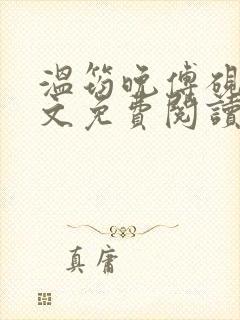 溫筠晚傅硯
文免費閱讀
真庸